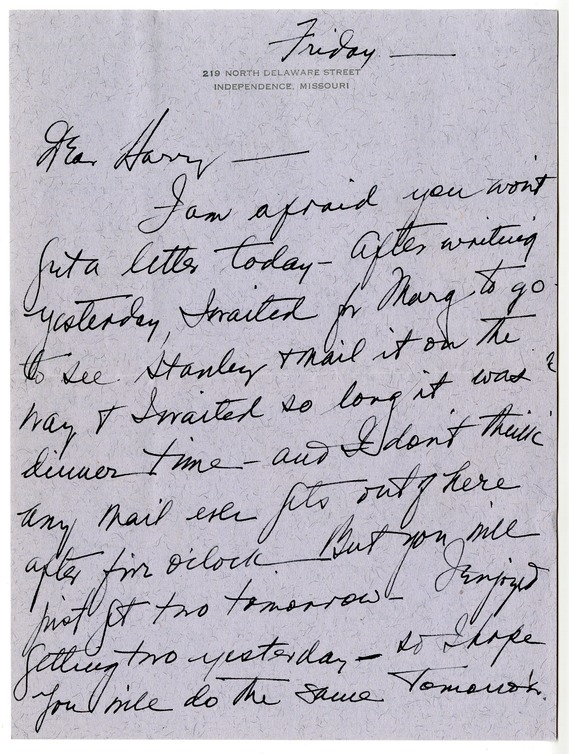 Friday —
219 NORTH DELAWARE STREET
INDEPENDENCE, MISSOURI
Dear Harry —
I am afraid you won't
get a letter today - After writing
yesterday, I waited for Marg to go
to see Stanley & mail it on the
way & I waited so long it was
dinner time - and I don't think
any mail ever gets out of here
after five o'clock — But you will
just get two tomorrow - I enjoyed
getting two yesterday - so I hope
you will do the same tomorrow.